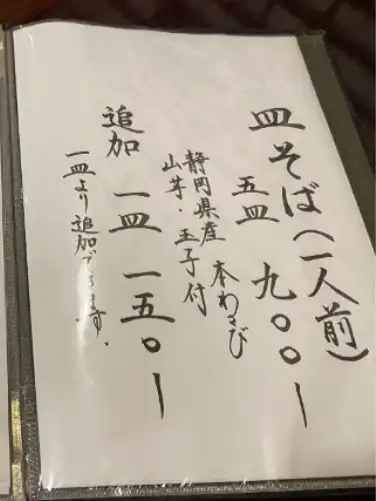 皿そば(一人前)
五皿 九〇〇ー
静岡県産 本わさび
山芋・玉子付
追加 一皿 一五〇ー
一皿より追加できます。